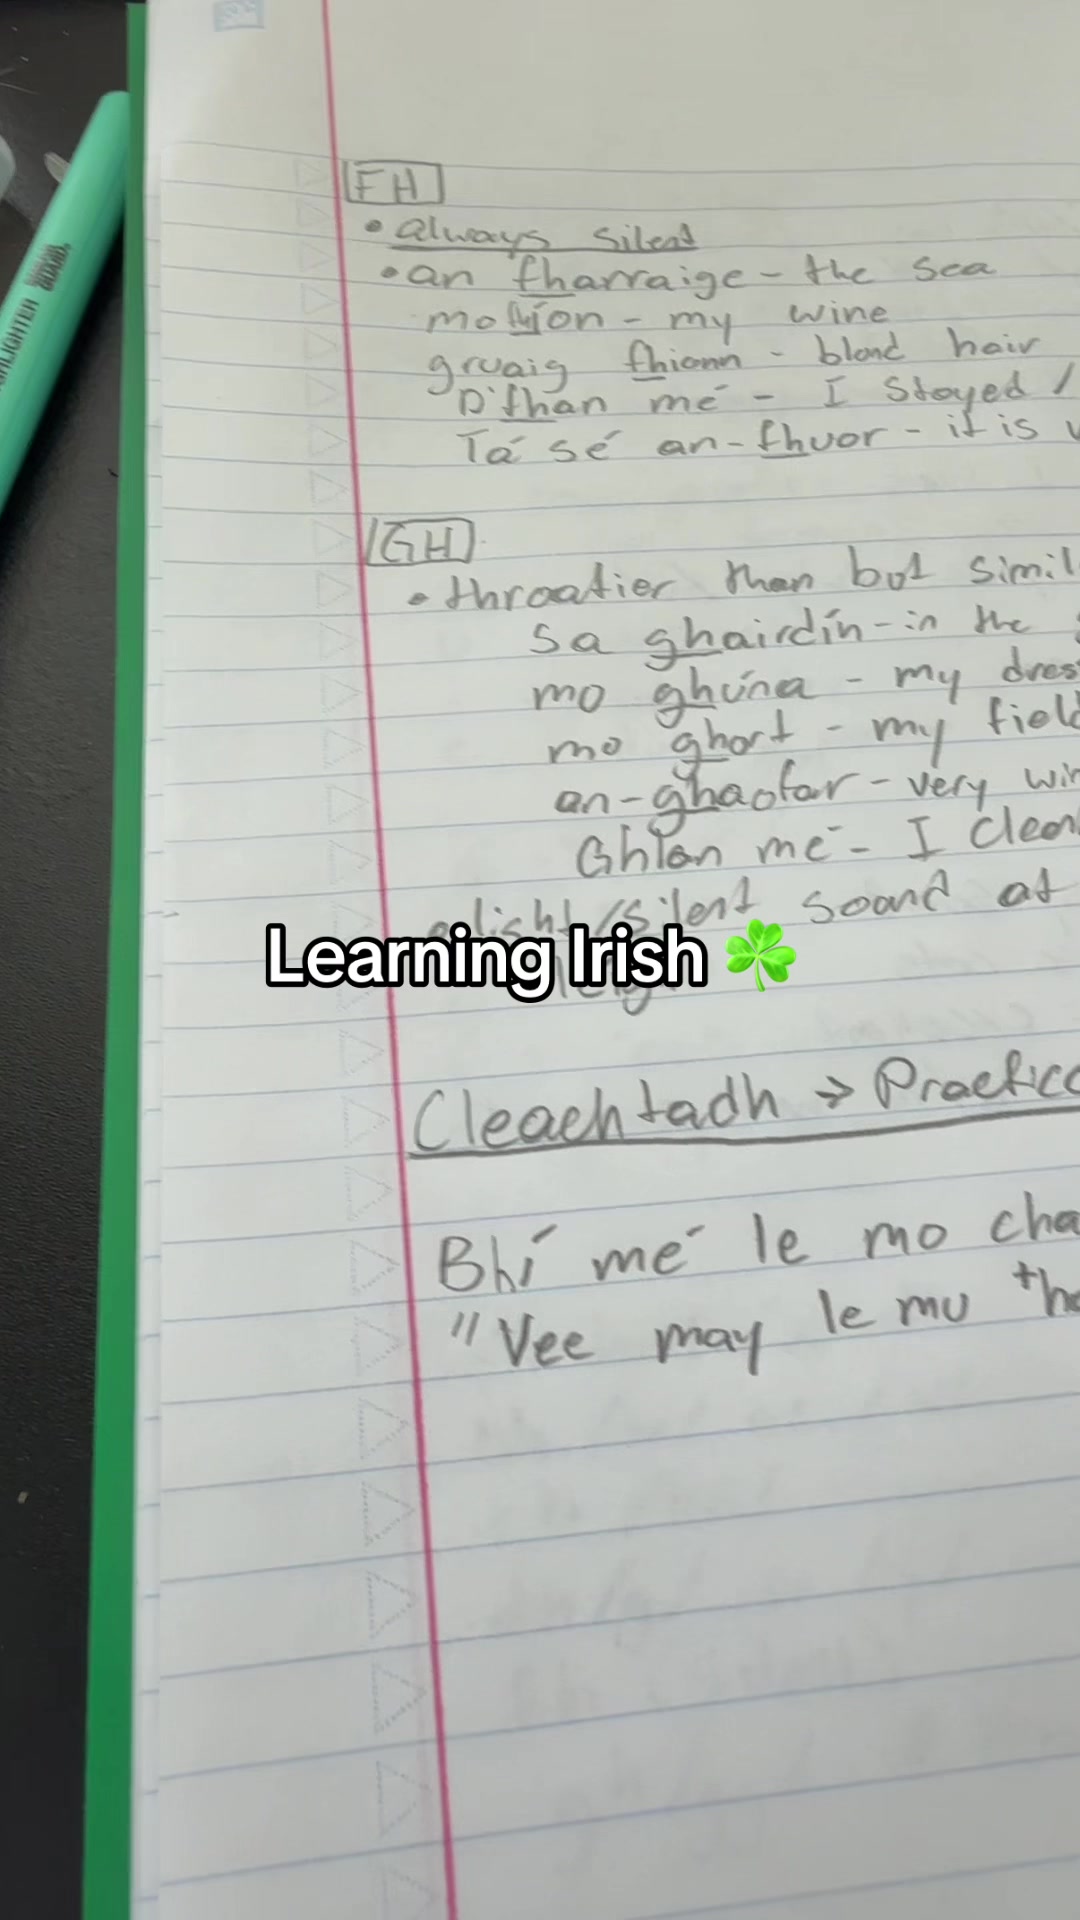 FH
• always silent
• an fharraige - the sea
mo fhíon - my wine
gruaig fhionn - blond hair
D'fhan mé - I stayed /
Tá sé an-fhuar - it is v
GH
• throatier than but simil
sa ghairdín - in the g
mo ghúna - my dres
mo ghort - my field
an-ghaofar - very win
Ghlan mé - I clean
slight/silent sound at
Learning Irish ☘️
Cleachtadh → Practice
Bhí mé le mo cha
"Vee may le mu
HIGHLIGHTER